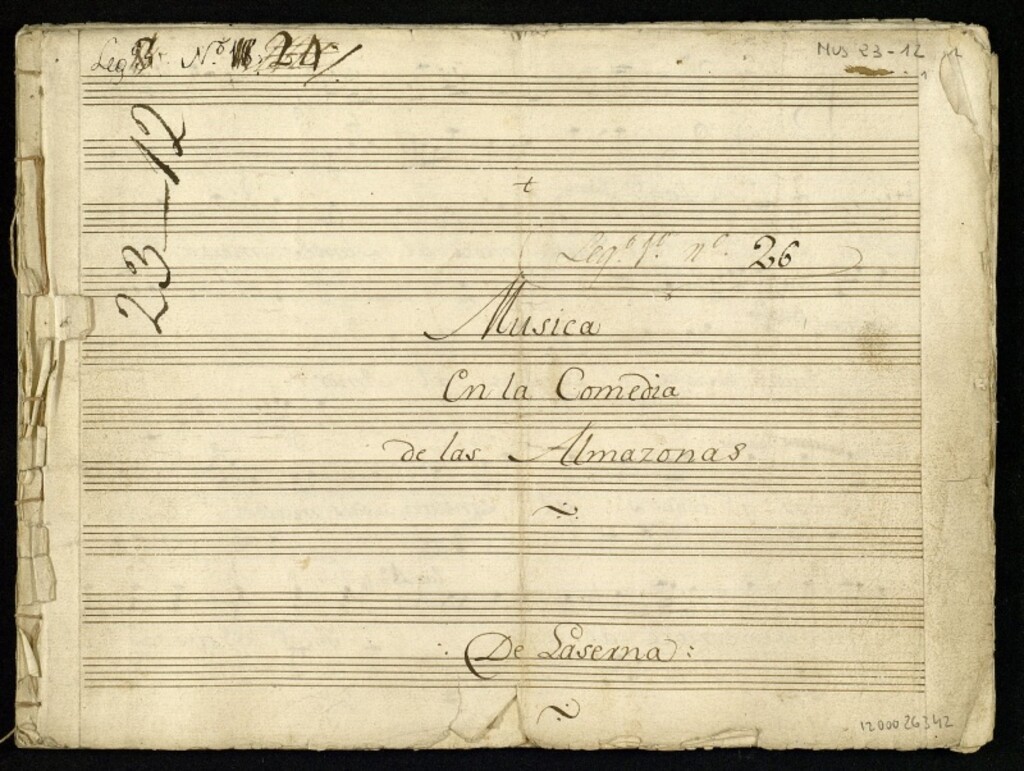 Leg.º 3º Nº 24
Mus 23-12
1
23-12
Leg.º 1º nº 26
Musica
En la Comedia
de las Almazonas
De Laserna:
1200026342